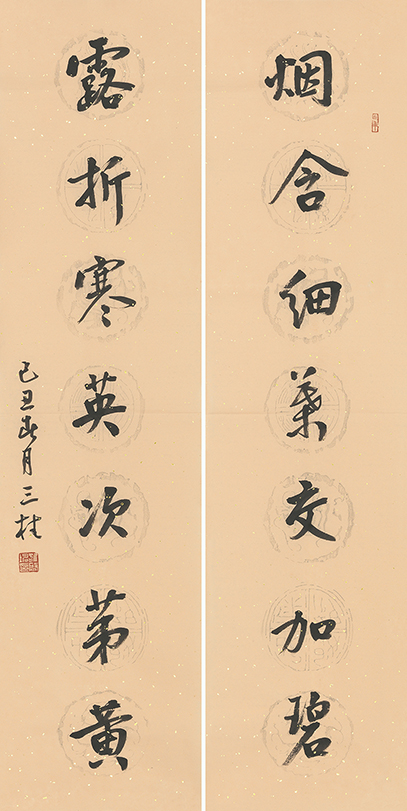 烟含细葉交加碧
露折寒英次苐黄
己丑春月三